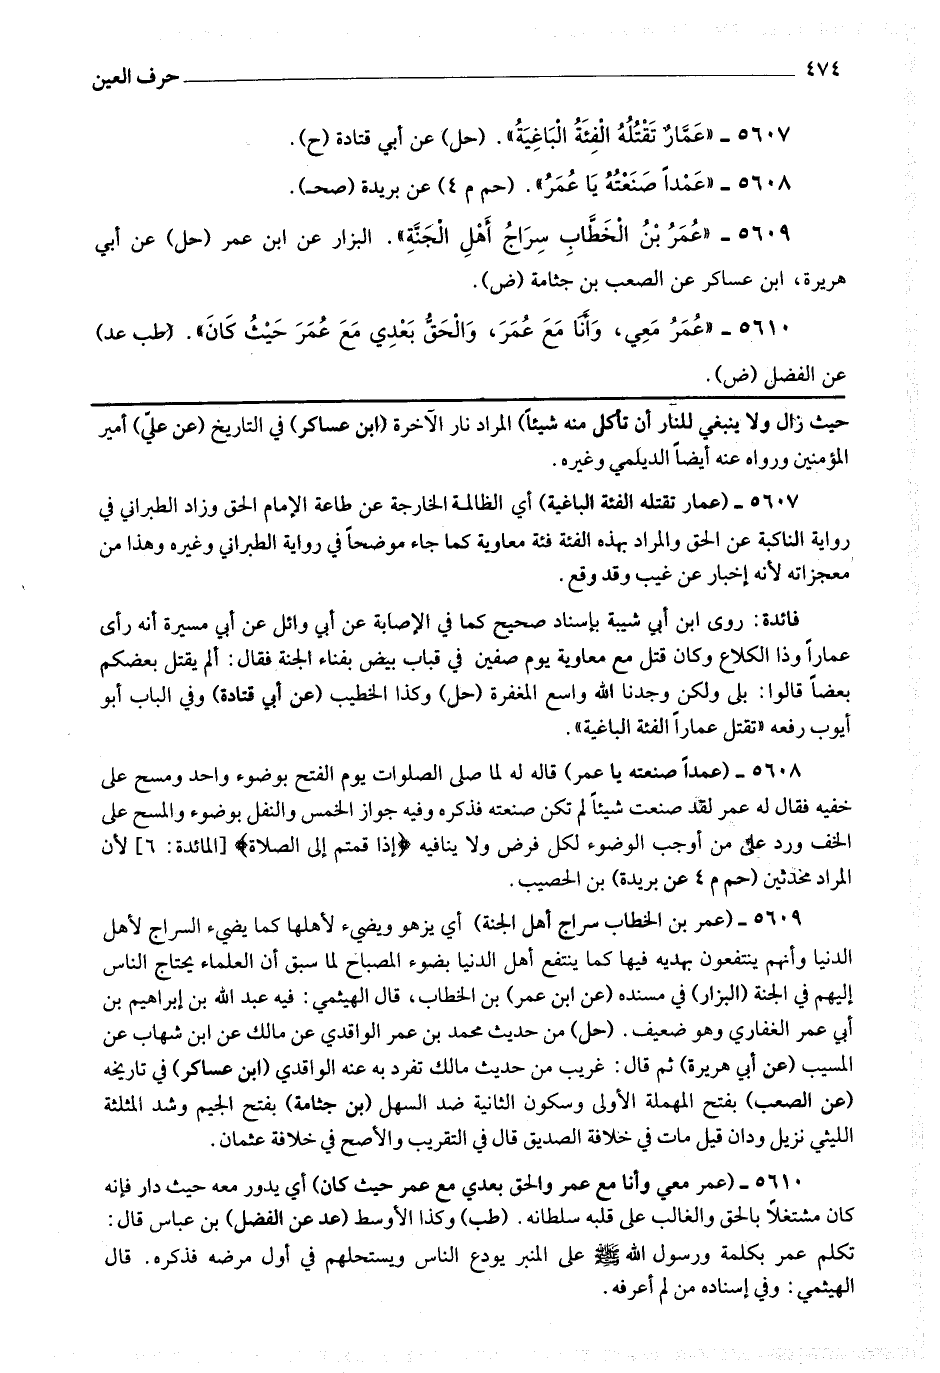 ٤٧٤ ــــــــــــــــــــــــ حرف العين
٥٦٠٧ ـ «عَمَّارٌ تَقْتُلُهُ الْفِئَةُ الْبَاغِيَةُ». (حل) عن أبي قتادة (ح).
٥٦٠٨ ـ «عَمْداً صَنَعْتُهُ يَا عُمَرُ». (حم م ٤) عن بريدة (صحـ).
٥٦٠٩ ـ «عُمَرُ بْنُ الْخَطَّابِ سِرَاجُ أَهْلِ الْجَنَّةِ». البزار عن ابن عمر (حل) عن أبي
هريرة، ابن عساكر عن الصعب بن جثامة (ض).
٥٦١٠ ـ «عُمَرُ مَعِي، وَأَنَا مَعَ عُمَرَ، وَالْحَقُّ بَعْدِي مَعَ عُمَرَ حَيْثُ كَانَ». (طب عد)
عن الفضل (ض).
حيث زال ولا ينبغي للنار أن تأكل منه شيئاً) المراد نار الآخرة (ابن عساكر) في التاريخ (عن عليّ) أمير
المؤمنين ورواه عنه أيضاً الديلمي وغيره.
٥٦٠٧ ـ (عمار تقتله الفئة الباغية) أي الظالمة الخارجة عن طاعة الإمام الحق وزاد الطبراني في
رواية الناكبة عن الحق والمراد بهذه الفئة فئة معاوية كما جاء موضحاً في رواية الطبراني وغيره وهذا من
معجزاته لأنه إخبار عن غيب وقد وقع.
فائدة: روى ابن أبي شيبة بإسناد صحيح كما في الإصابة عن أبي وائل عن أبي مسيرة أنه رأى
عماراً وذا الكلاع وكان قتل مع معاوية يوم صفين في قباب بيض بفناء الجنة فقال: ألم يقتل بعضكم
بعضاً قالوا: بلى ولكن وجدنا الله واسع المغفرة (حل) وكذا الخطيب (عن أبي قتادة) وفي الباب أبو
أيوب رفعه «تقتل عماراً الفئة الباغية».
٥٦٠٨ ـ (عمداً صنعته يا عمر) قاله له لما صلى الصلوات يوم الفتح بوضوء واحد ومسح على
خفيه فقال له عمر لقد صنعت شيئاً لم تكن صنعته فذكره وفيه جواز الخمس والنفل بوضوء والمسح على
الخف ورد على من أوجب الوضوء لكل فرض ولا ينافيه ﴿إذا قمتم إلى الصلاة﴾ [المائدة: ٦] لأن
المراد محدثين (حم م ٤ عن بريدة) بن الحصيب.
٥٦٠٩ ـ (عمر بن الخطاب سراج أهل الجنة) أي يزهو ويضيء لأهلها كما يضيء السراج لأهل
الدنيا وأنهم ينتفعون بهديه فيها كما ينتفع أهل الدنيا بضوء المصباح لما سبق أن العلماء يحتاج الناس
إليهم في الجنة (البزار) في مسنده (عن ابن عمر) بن الخطاب، قال الهيثمي: فيه عبد الله بن إبراهيم بن
أبي عمر الغفاري وهو ضعيف. (حل) من حديث محمد بن عمر الواقدي عن مالك عن ابن شهاب عن
المسيب (عن أبي هريرة) ثم قال: غريب من حديث مالك تفرد به عنه الواقدي (ابن عساكر) في تاريخه
(عن الصعب) بفتح المهملة الأولى وسكون الثانية ضد السهل (بن جثامة) بفتح الجيم وشد المثلثة
الليثي نزيل ودان قيل مات في خلافة الصديق قال في التقريب والأصح في خلافة عثمان.
٥٦١٠ ـ (عمر معي وأنا مع عمر والحق بعدي مع عمر حيث كان) أي يدور معه حيث دار فإنه
كان مشتغلاً بالحق والغالب على قلبه سلطانه. (طب) وكذا الأوسط (عد عن الفضل) بن عباس قال:
تكلم عمر بكلمة ورسول الله ﷺ على المنبر يودع الناس ويستحلهم في أول مرضه فذكره. قال
الهيثمي: وفي إسناده من لم أعرفه.